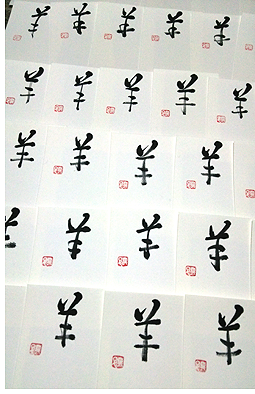 羊 羊 羊 羊 羊
羊 羊 羊 羊 羊
羊 羊 羊 羊
羊 羊 羊 羊
羊 羊 羊